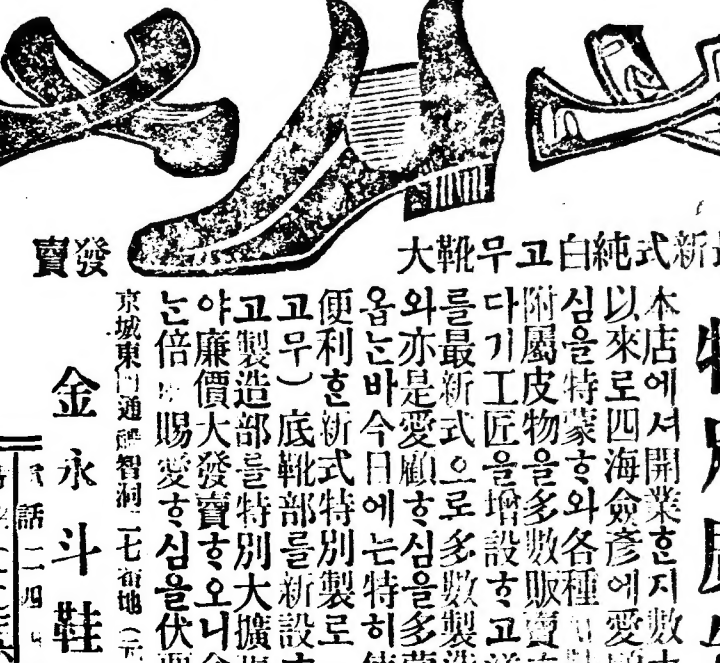 新式純白고무靴大發賣
本店에셔開業ᄒᆞᆫ지數
以來로四海僉彦에愛
심을特蒙ᄒᆞ와各種
附屬皮物을多數販賣
다기工匠을增設ᄒᆞ고
를最新式으로多數製造
와亦是愛顧ᄒᆞ심을多蒙
옵는바今日에는特히
便利ᄒᆞᆫ新式特別製로
고무)底靴部를新設
고製造部를特別大擴
야廉價大發賣ᄒᆞ오니
는倍賜愛ᄒᆞ심을伏
京城東門通禮智洞二七番地(元
金永斗鞋
話二四